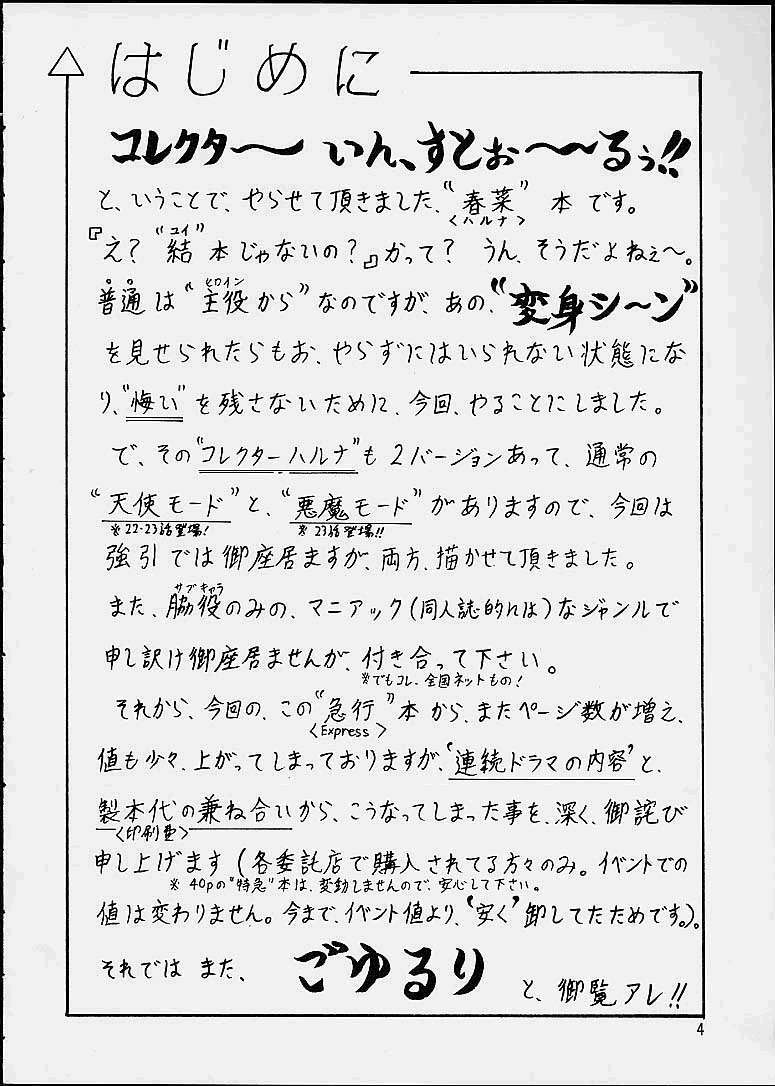 はじめに
コレクター〜 いん、すとぉ〜〜るぅ!!
と、いうことで、やらせて頂きました、“春菜” 本です。
<ハルナ>
『え？“結”本じゃないの？』かって？ うん、そうだよねぇ〜。
ユイ
普通は“主役から”なのですが、あの、“変身シ〜ン”
ヒロイン
を見せられたらもお、やらずにはいられない状態にな
り、“悔い”を残さないために、今回、やることにしました。
で、その“コレクターハルナ”も2バージョンあって、通常の
“天使モード”と、“悪魔モード”がありますので、今回は
※22・23話登場!
※23話登場!!
強引では御座居ますが、両方、描かせて頂きました。
サブキャラ
また、脇役のみの、マニアック(同人誌的には)なジャンルで
申し訳け御座居ませんが、付き合って下さい。
※でもコレ、全国ネットもの!
それから、今回の、この“急行”本から、またページ数が増え、
<Express>
値も少々、上がってしまっておりますが、‘連続ドラマの内容’と、
製本代の兼ね合いから、こうなってしまった事を、深く、御詫び
<印刷費>
申し上げます(各委託店で購入されてる方々のみ。イベントでの
※40pの“特急”本は、変動しませんので、安心して下さい。
値は変わりません。今まで、イベント値より、‘安く’卸してたためです。)。
それでは また、 ごゆるり と、御覧アレ!!
4